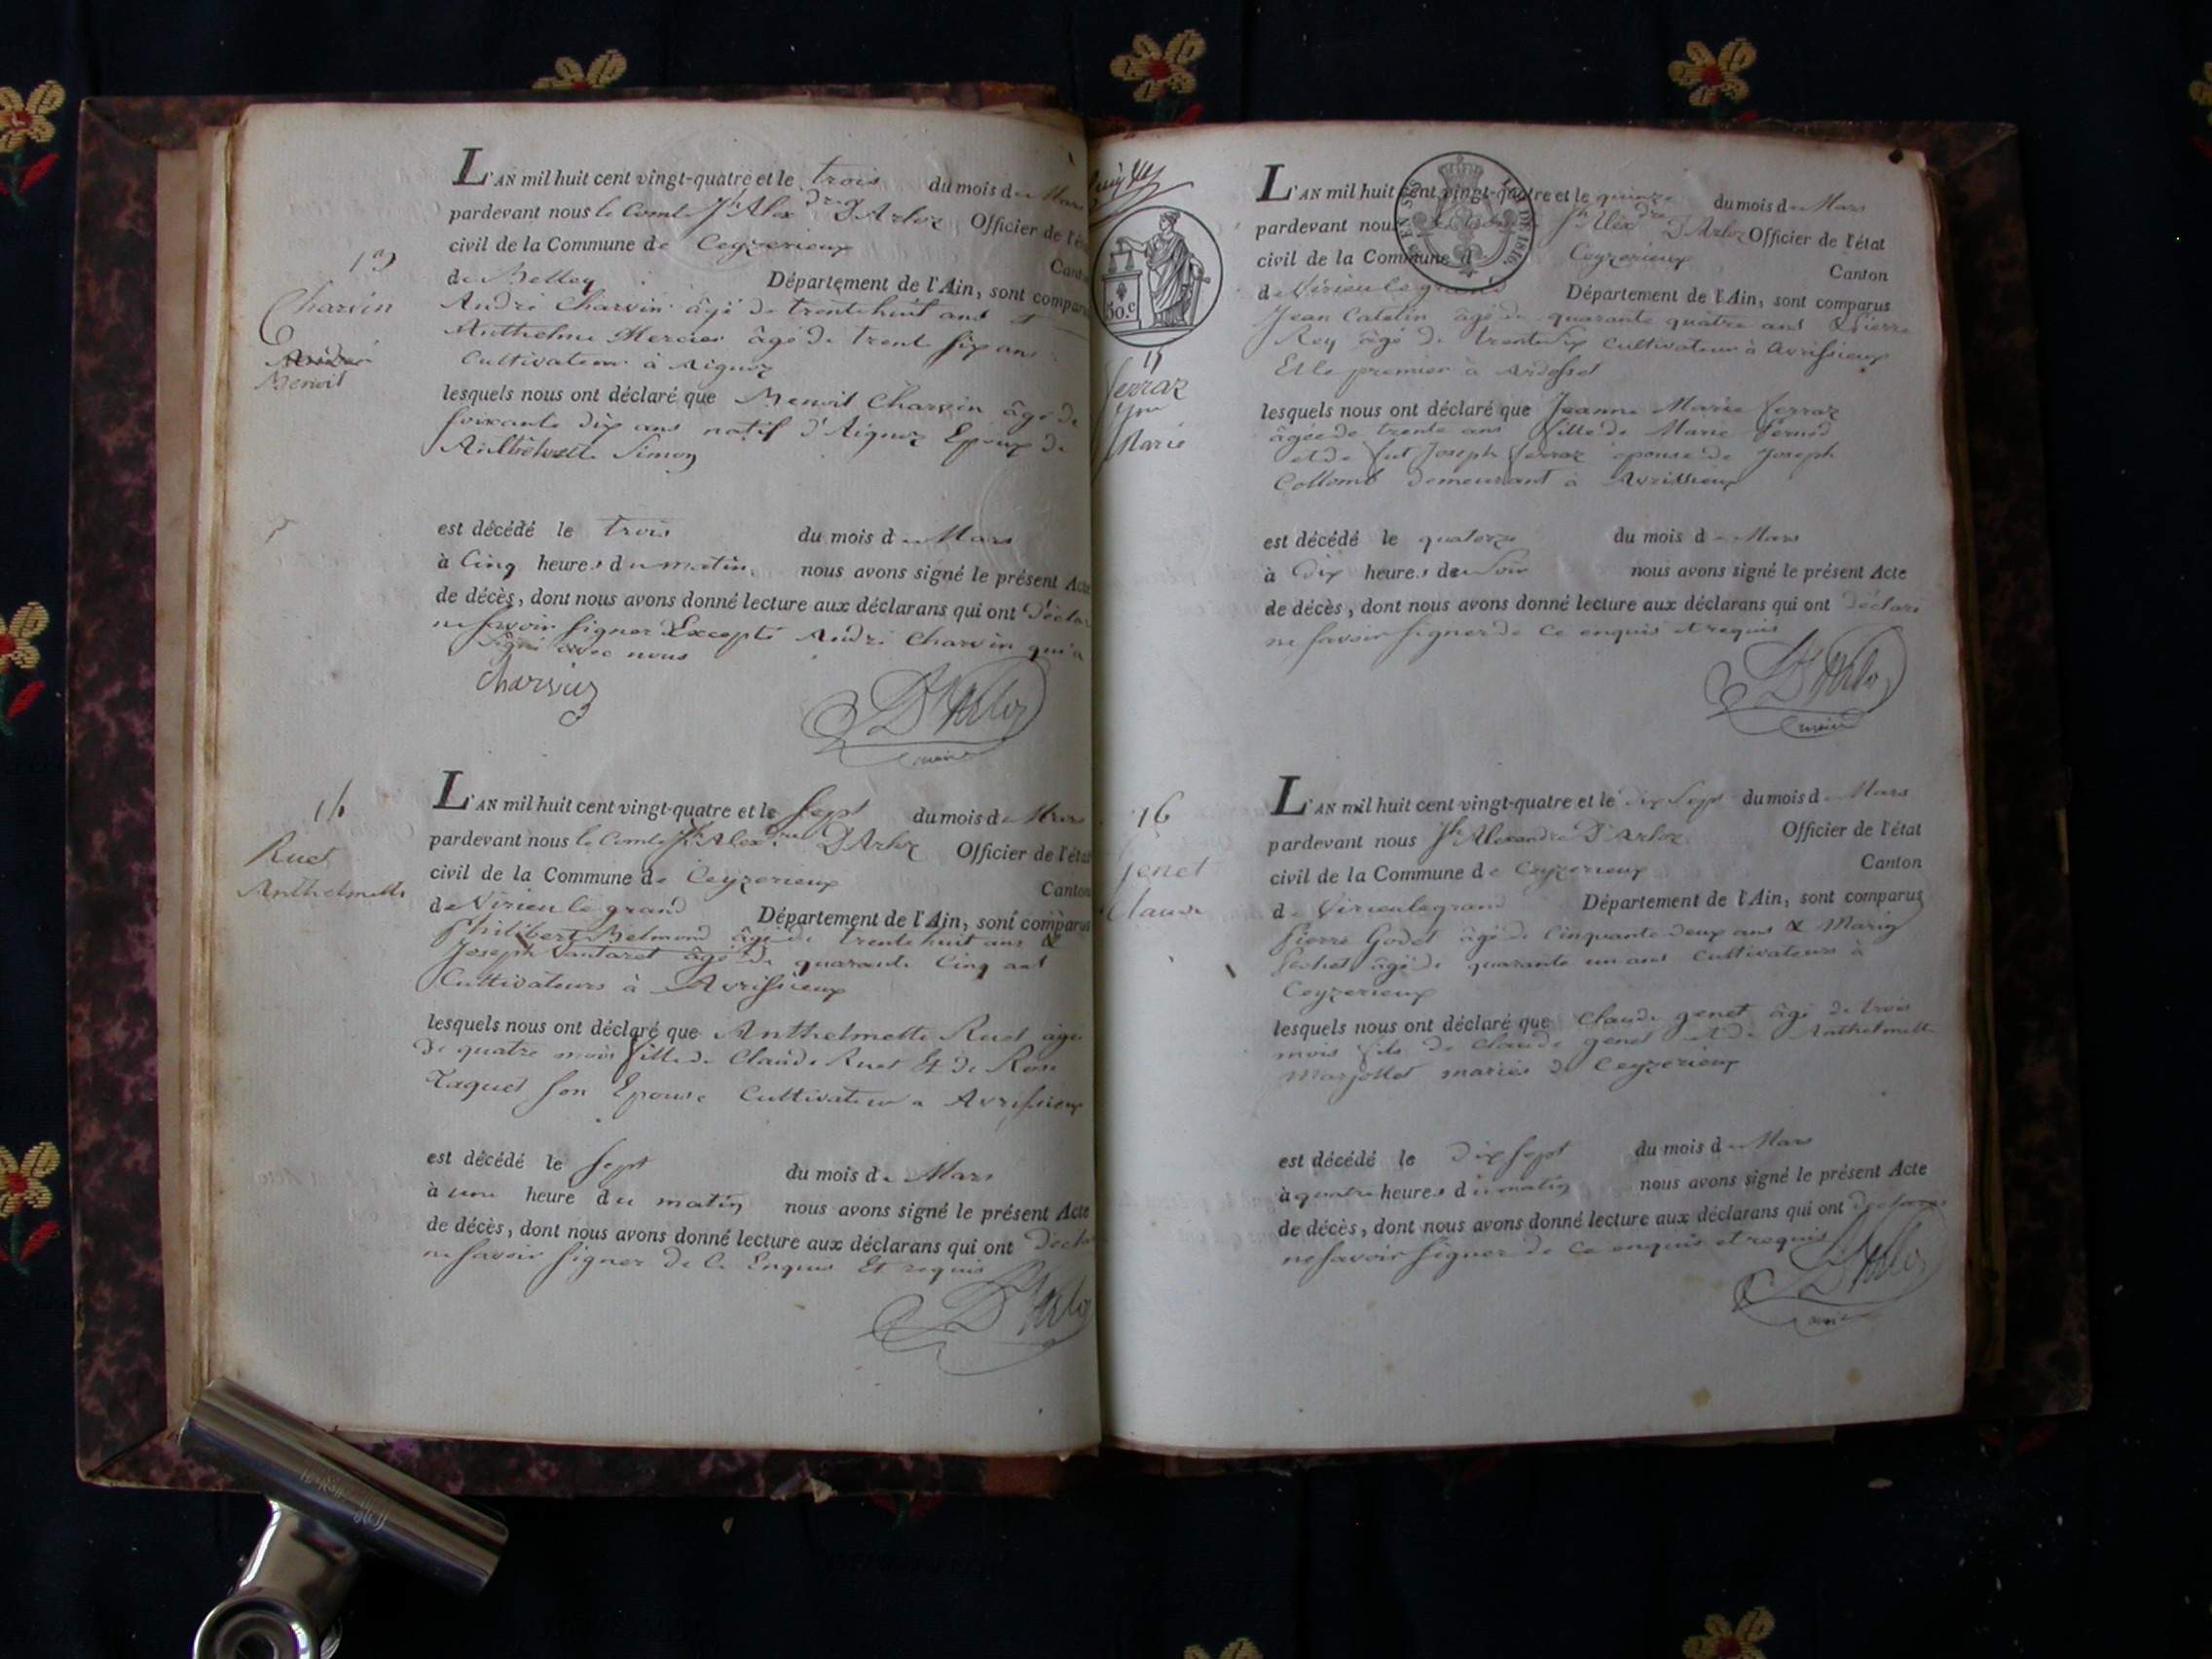 13
Charvin
Benoit
L'AN mil huit cent vingt-quatre et le trois du mois de Mars
pardevant nous le Comte Jh Alexdre D'Arloz Officier de l'état
civil de la Commune de Ceyzerieux Canton
de Belley Département de l'Ain, sont comparus
André Charvin âgé de trente huit ans et
Anthelme Mercier âgé de trente six ans
Cultivateur à Aignoz
lesquels nous ont déclaré que Benoit Charvin âgé de
soixante dix ans natif d'Aignoz Epoux de
Simon
est décédé le trois du mois de Mars
à Cinq heures du matin. nous avons signé le présent Acte
de décès, dont nous avons donné lecture aux déclarans qui ont
ne savoir signer Excepté André Charvin qui a
signé avec nous
Charvin
D'Arloz
maire
14
Ruet
Anthelmette
L'AN mil huit cent vingt-quatre et le sept du mois de Mars
pardevant nous le Comte Jh Alexdre D'Arloz Officier de l'état
civil de la Commune de Ceyzerieux Canton
de Virieu le grand Département de l'Ain, sont comparus
Philibert Belmond âgé de trente huit ans &
Joseph âgé de quarante Cinq ans
Cultivateurs à Avrissieux
lesquels nous ont déclaré que Anthelmette Ruet âgée
de quatre mois fille de Claude Ruet Et de Rose
son Epouse Cultivateur a Avrissieux
est décédé le sept du mois de Mars
à une heure du matin nous avons signé le présent Acte
de décès, dont nous avons donné lecture aux déclarans qui ont
ne savoir signer de Ce Enquis Et requis
D'Arloz
50.c
15
ferraz
Marie
L'AN mil huit cent vingt-quatre et le quinze du mois de Mars
pardevant nous Jh Alexdre D'Arloz Officier de l'état
civil de la Commune d Ceyzerieux Canton
de Virieu le grand Département de l'Ain, sont comparus
Jean Catelin âgé de quarante quatre ans & Pierre
Rey âgé de trente six Cultivateur à Avrissieux
Et le premier à Ardosset
lesquels nous ont déclaré que Jeanne Marie ferraz
âgée de trente ans fille de Marie
et de fut Joseph ferraz épouse de Joseph
Collomb demeurant à Avrissieux
est décédé le quatorze du mois de Mars
à dix heures du soir nous avons signé le présent Acte
de décès, dont nous avons donné lecture aux déclarans qui ont déclaré
ne savoir signer de Ce enquis et requis
D'Arloz
maire
16
genet
Claude
L'AN mil huit cent vingt-quatre et le dix sept du mois de Mars
pardevant nous Jh Alexandre D'Arloz Officier de l'état
civil de la Commune de Ceyzerieux Canton
de Virieu le grand Département de l'Ain, sont comparus
Pierre Godet âgé de Cinquante deux ans & Marin
âgé de quarante un ans Cultivateurs à
Ceyzerieux
lesquels nous ont déclaré que Claude genet âgé de trois
mois fils de Claude genet et de Anthelmette
Marjollet mariés de Ceyzerieux
est décédé le dix sept du mois de Mars
à quatre heures du matin nous avons signé le présent Acte
de décès, dont nous avons donné lecture aux déclarans qui ont
ne savoir signer de Ce enquis et requis
D'Arloz
maire